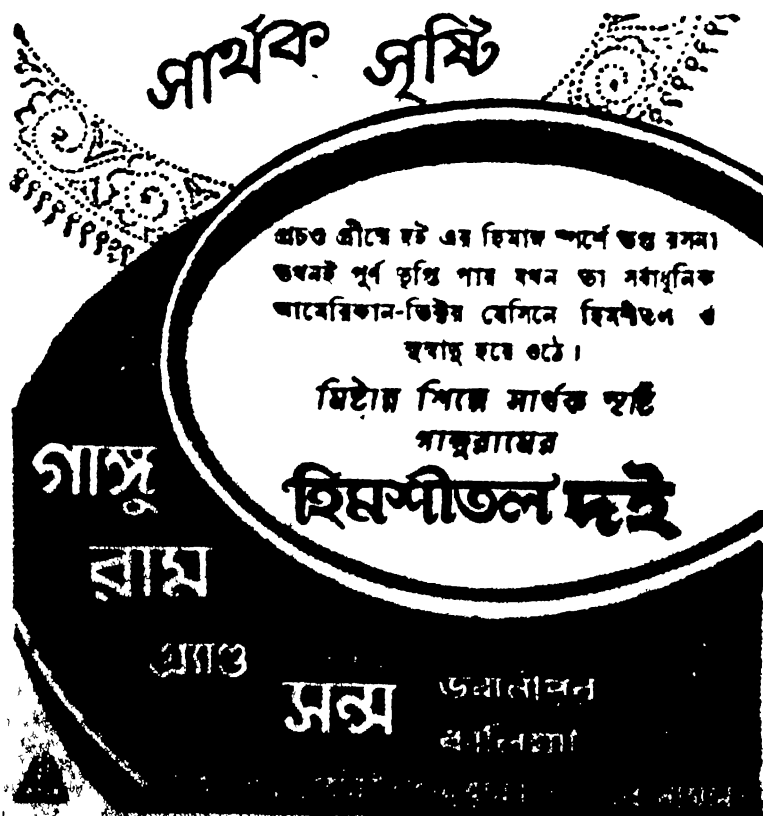 সার্থক সৃষ্টি
প্রচণ্ড গ্রীষ্মে দই এর হিমায় স্পর্শে তপ্ত রসনা
তখনই পূর্ণ তৃপ্তি পায় যখন তা সর্বাধুনিক
আমেরিকান-ভিক্টর মেসিনে হিমশীতল ও
সুস্বাদু হয়ে ওঠে।
মিষ্টান্ন শিল্পে সার্থক সৃষ্টি
গাঙ্গুরামের
হিমশীতল দই
গাঙ্গু
রাম
এ্যাণ্ড
সন্স
ভবানীপুর